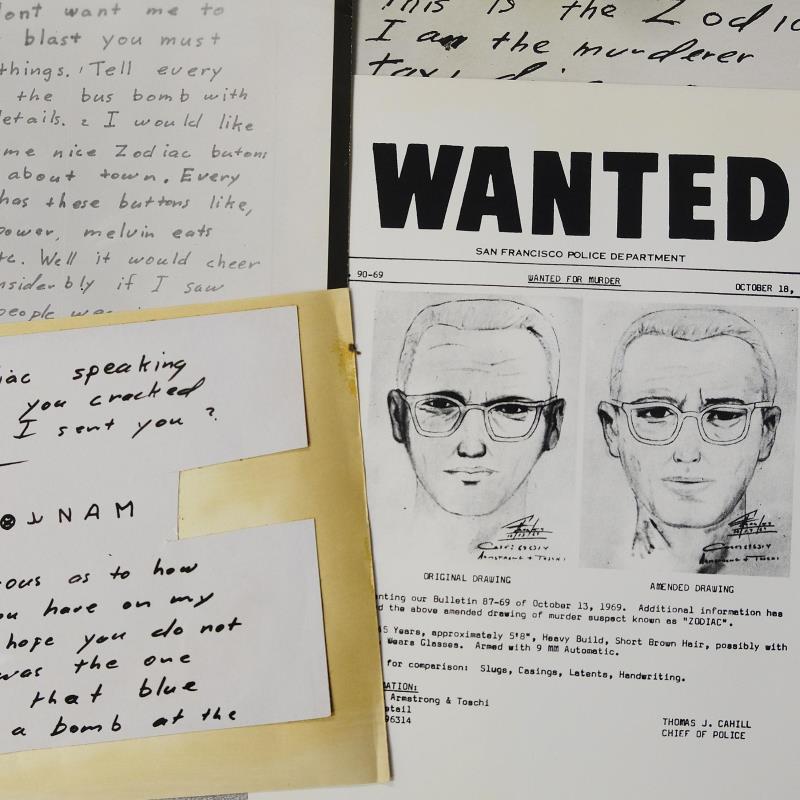 dont want me to
blast you must
things. Tell every
the bus bomb with
details. 2 I would like
me nice Zodiac butons
about town. Every
has these buttons like,
power, melvin eats
tc. Well it would cheer
nsiderbly if I saw
people
This is the Zodiac
I am the murderer
taxi
WANTED
SAN FRANCISCO POLICE DEPARTMENT
90-69 WANTED FOR MURDER OCTOBER 18,
ORIGINAL DRAWING AMENDED DRAWING
nting our Bulletin 87-69 of October 13, 1969. Additional information has
d the above amended drawing of murder suspect known as "ZODIAC".
45 Years, approximately 5'8", Heavy Build, Short Brown Hair, possibly with
Wears Glasses. Armed with 9 MM Automatic.
for comparison: Slugs, Casings, Latents, Handwriting.
ATION:
Armstrong & Toschi
etail
96314
THOMAS J. CAHILL
CHIEF OF POLICE
iac speaking
you cracked
I sent you ?
NAM
ous as to how
ou have on my
hope you do not
was the one
that blue
a bomb at the